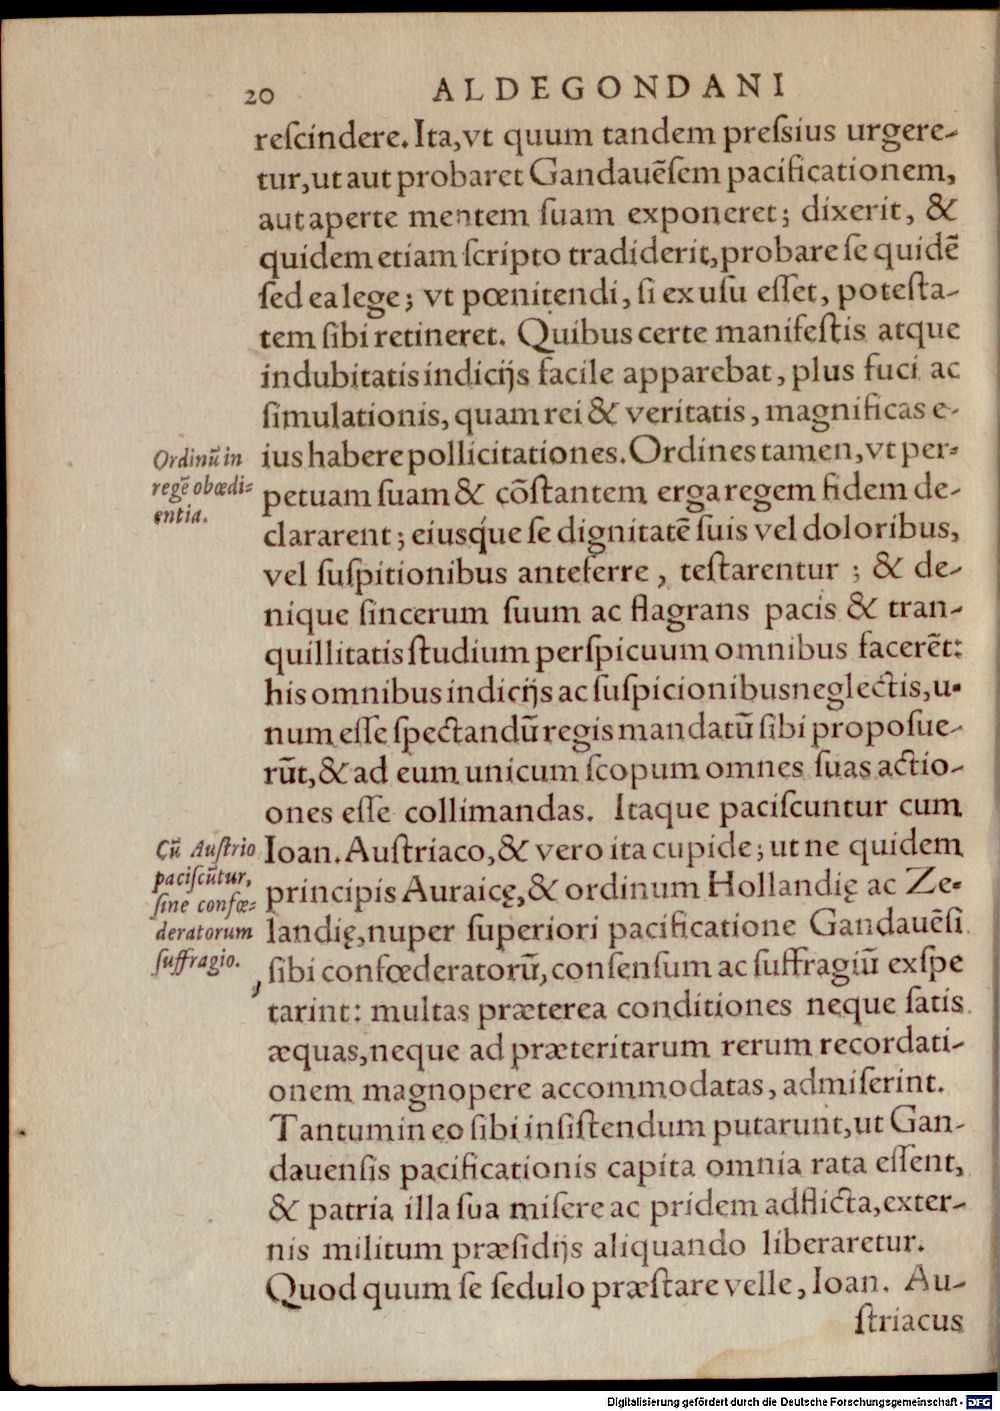 20 ALDEGONDANI
reſcindere. Ita, vt quum tandem preſsius urgere-
tur, ut aut probaret Gandauẽſem pacificationem,
aut aperte mentem ſuam exponeret; dixerit, &
quidem etiam ſcripto tradiderit, probare ſe quidẽ
ſed ea lege; vt pœnitendi, ſi ex uſu eſſet, poteſta-
tem ſibi retineret. Quibus certe manifeſtis atque
indubitatis indicijs facile apparebat, plus fuci ac
ſimulationis, quam rei & veritatis, magnificas e-
ius habere pollicitationes. Ordines tamen, vt per-
Ordinũ in
regẽ obœdi-
entia.
petuam ſuam & cõſtantem erga regem fidem de-
clararent; eiusq́ue ſe dignitatẽ ſuis vel doloribus,
vel ſuſpitionibus anteferre, teſtarentur; & de-
nique ſincerum ſuum ac flagrans pacis & tran-
quillitatis ſtudium perſpicuum omnibus facerẽt:
his omnibus indicijs ac ſuſpicionibus neglectis, u-
num eſſe ſpectandũ regis mandatũ ſibi propoſue-
rũt, & ad eum unicum ſcopum omnes ſuas actio-
ones eſſe collimandas. Itaque paciſcuntur cum
Ioan. Auſtriaco, & vero ita cupide; ut ne quidem
Cũ Auſtrio
paciſcũtur,
ſine confœ-
deratorum
ſuffragio.
principis Auraicę, & ordinum Hollandię ac Ze-
landię, nuper ſuperiori pacificatione Gandauẽſi
ſibi confœderatorũ, conſenſum ac ſuffragiũ exſpe
tarint: multas præterea conditiones neque ſatis
æquas, neque ad præteritarum rerum recordati-
onem magnopere accommodatas, admiſerint.
Tantum in eo ſibi inſiſtendum putarunt, ut Gan-
dauenſis pacificationis capita omnia rata eſſent,
& patria illa ſua miſere ac pridem adflicta, exter-
nis militum præſidijs aliquando liberaretur.
Quod quum ſe ſedulo præſtare velle, Ioan. Au-
ſtriacus
Digitalisierung gefördert durch die Deutsche Forschungsgemeinschaft - DFG